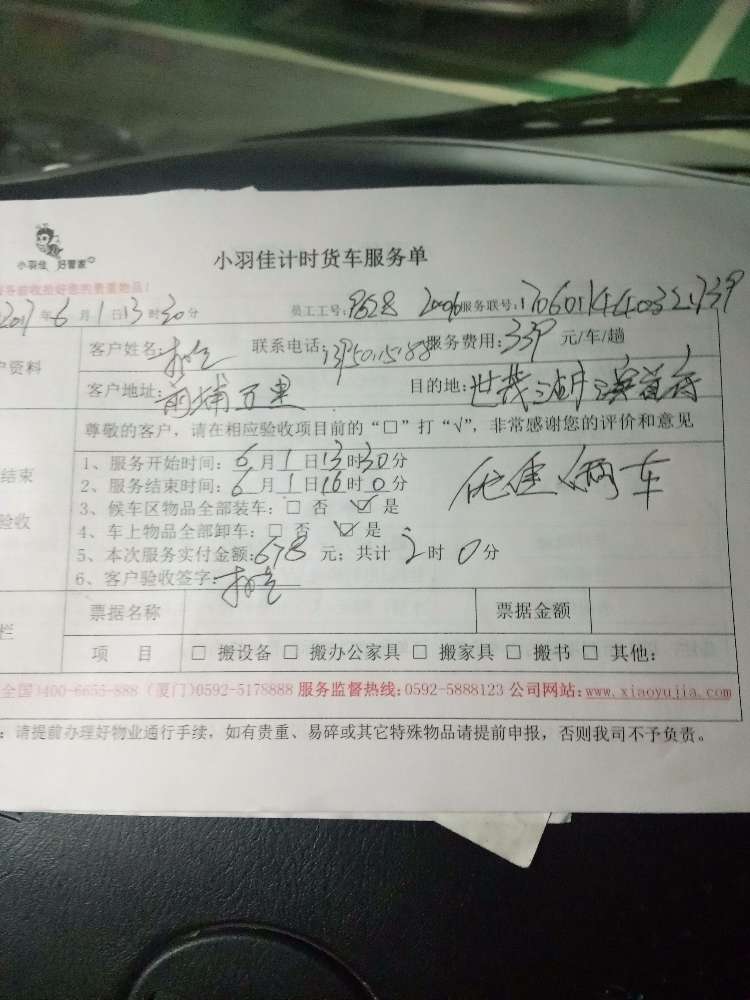 小羽佳 好管家
小羽佳计时货车服务单
务前收拾好您的贵重物品!
2017年6月1日13时30分 员工工号: 服务联号:
户资料
客户姓名: 联系电话: 服务费用:339 元/车/趟
客户地址:前埔 目的地:世茂
尊敬的客户,请在相应验收项目前的“□”打“√”,非常感谢您的评价和意见
结束
验收
1、服务开始时间:6月1日13时30分
2、服务结束时间:6月1日16时0分
3、候车区物品全部装车:□ 否 ☑ 是
4、车上物品全部卸车:□ 否 ☑ 是
5、本次服务实付金额:678 元;共计 2 时 0 分
6、客户验收签字:
两车
栏
票据名称 票据金额
项 目 □ 搬设备 □ 搬办公家具 □ 搬家具 □ 搬书 □ 其他:
全国)400-6655-888 (厦门)0592-5178888 服务监督热线:0592-5888123 公司网站:www.xiaoyujia.com
:请提前办理好物业通行手续,如有贵重、易碎或其它特殊物品请提前申报,否则我司不予负责。